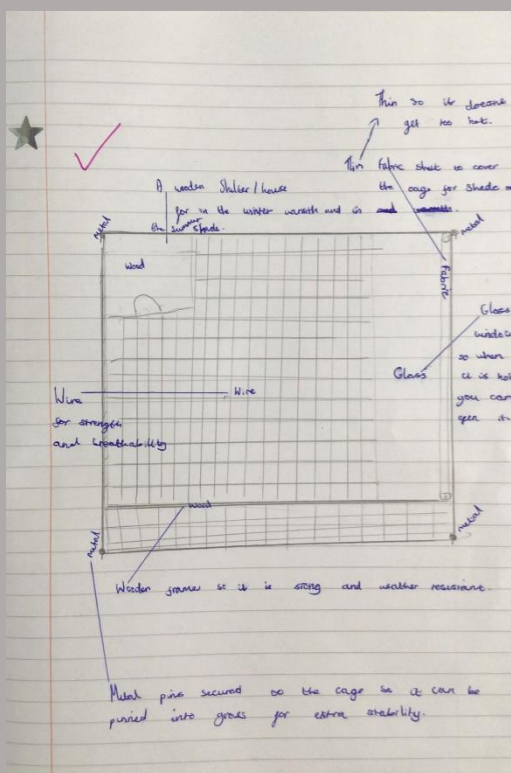 Thin so it doesn
get too hot.
Thin Fabric sheet to cover
the cage for shade
A wooden Shelter/house
for in the winter warmth and in
the summer shade.
metal
metal
Wood
Fabric
Glass
window
so when
it is ho
you can
open it
Glass
Wire
Wire
for strength
and breathability
Wood
metal
metal
Wooden frame so it is strong and weather resistance.
Metal pins secured to the cage so it can be
pinned into grass for extra stability.